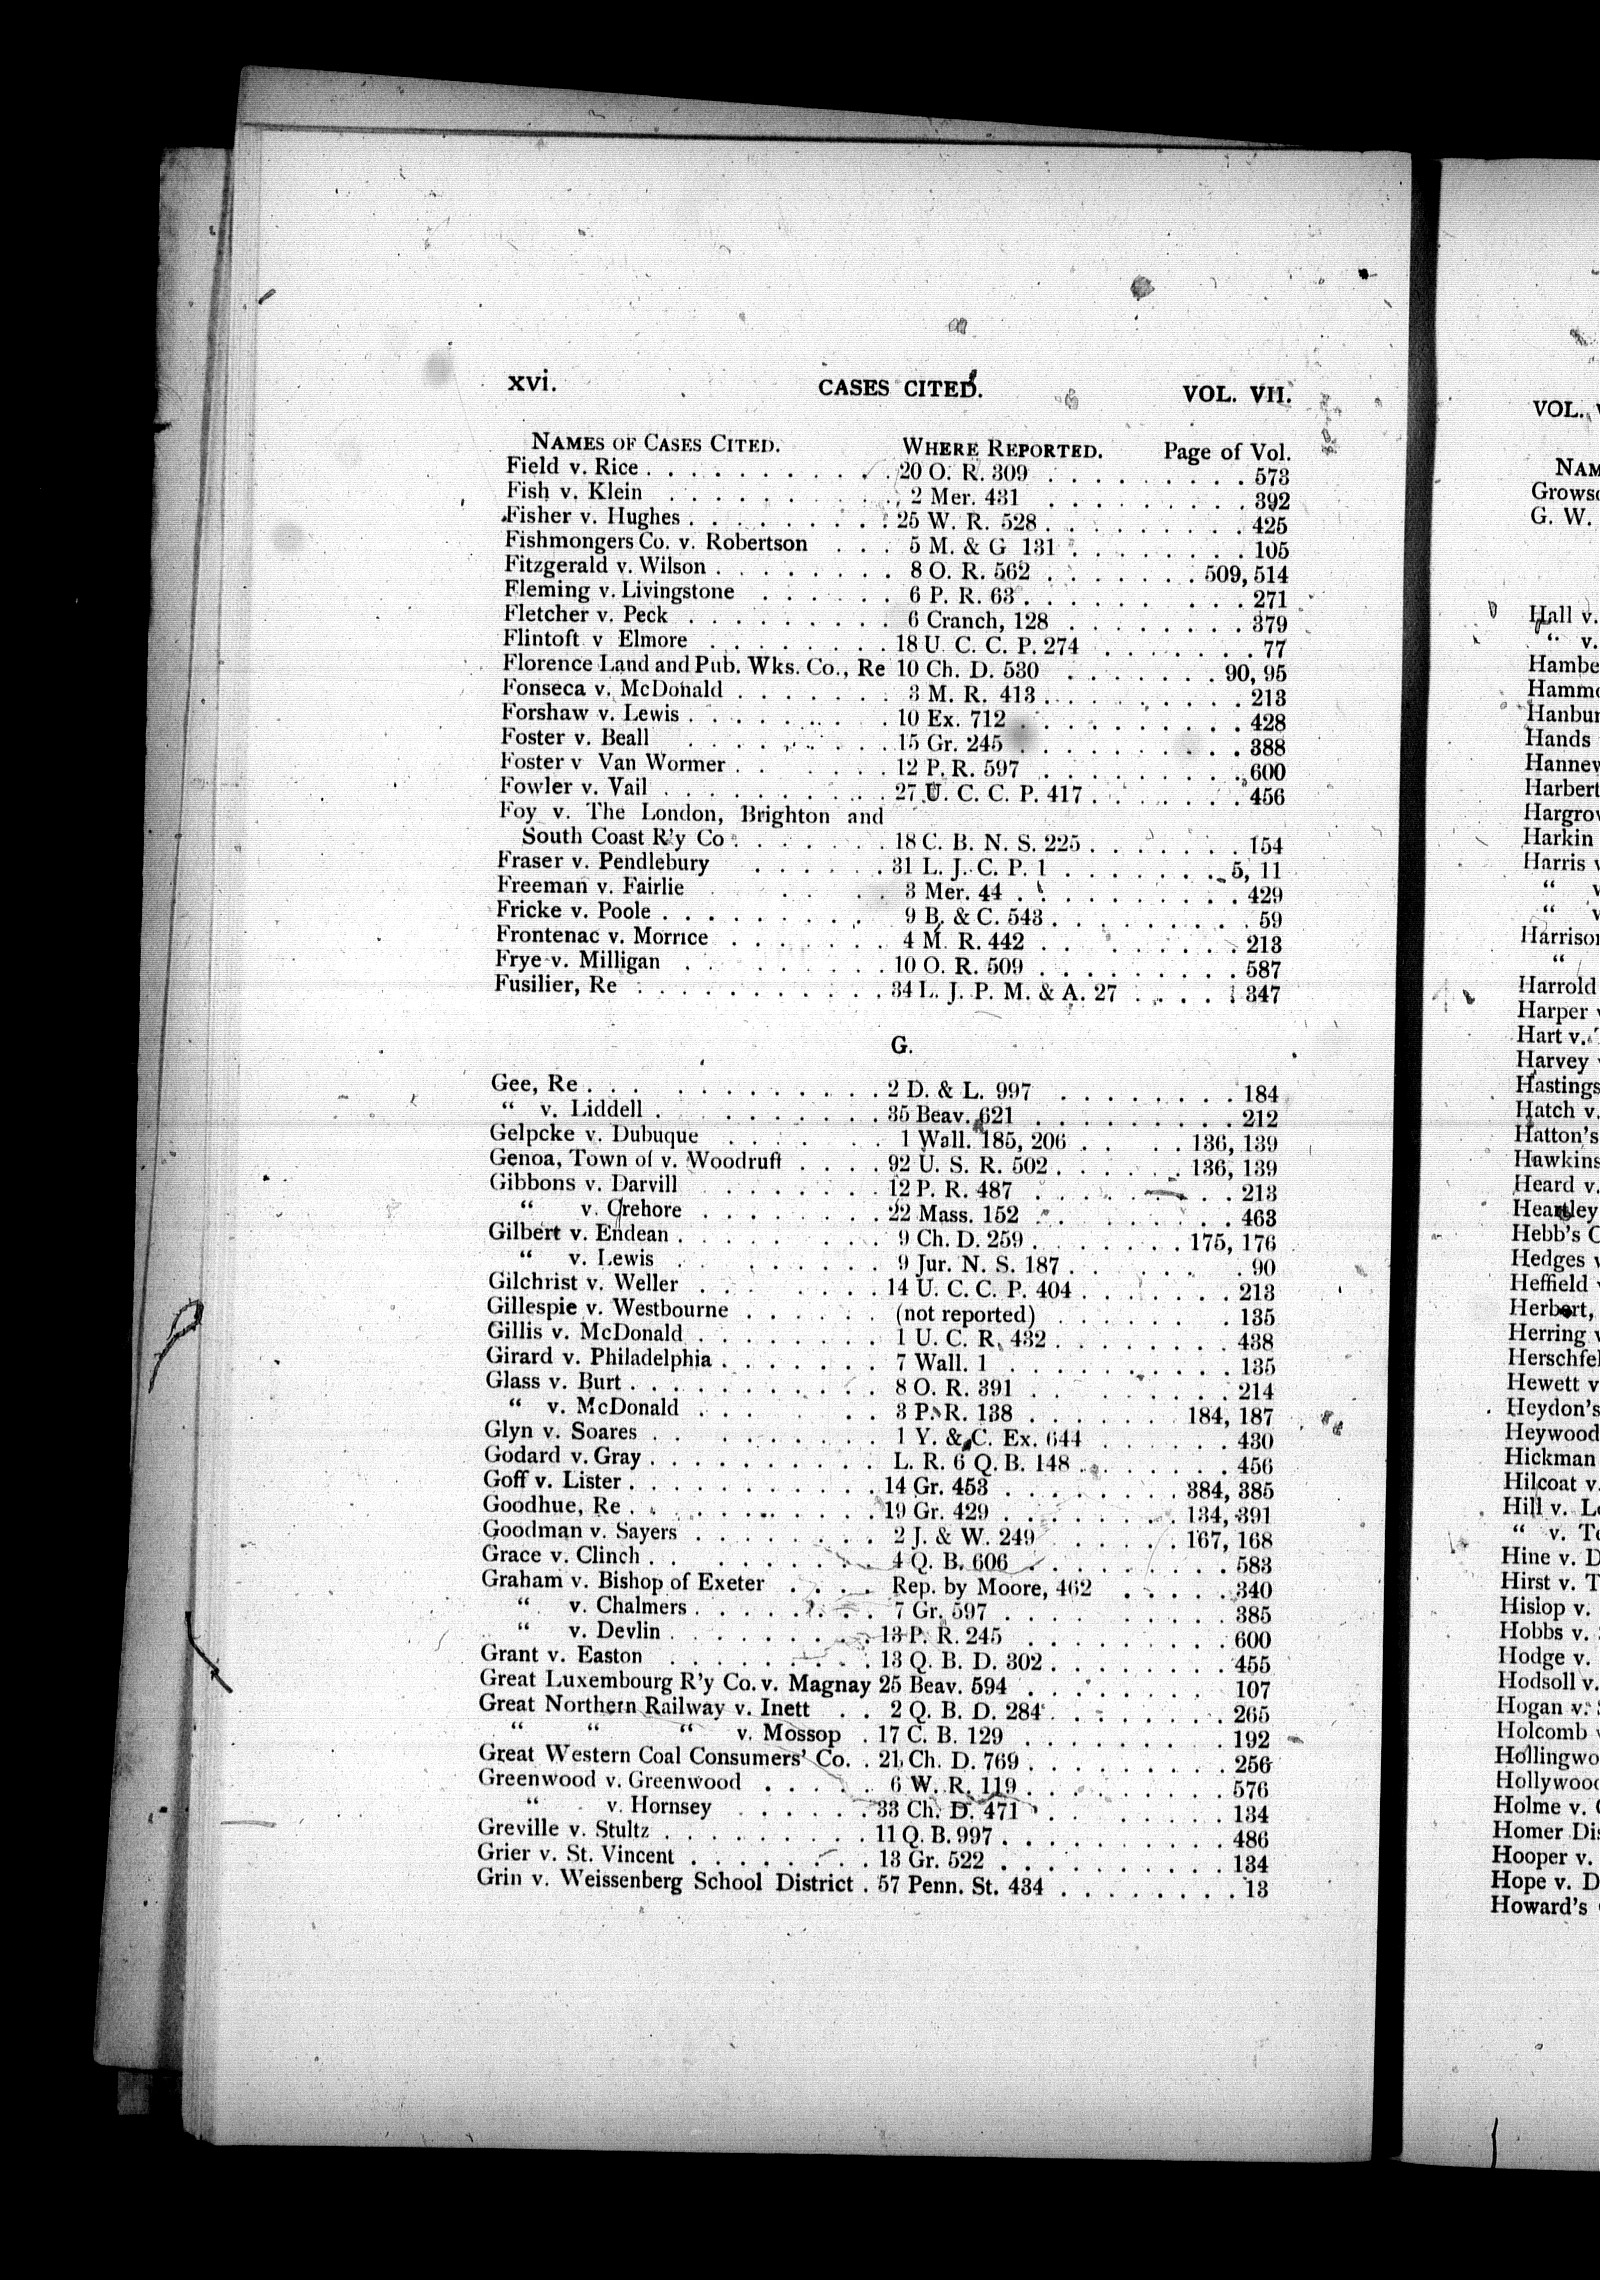 xvi. CASES CITED. VOL. VII.
NAMES OF CASES CITED. WHERE REPORTED. Page of Vol.
Field v. Rice . . . . . . . . . . . 20 O. R. 309 . . . . . . . . . 573
Fish v. Klein . . . . . . . . . . 2 Mer. 431 . . . . . . . . . 392
Fisher v. Hughes . . . . . . . . . 25 W. R. 528 . . . . . . . . . 425
Fishmongers Co. v. Robertson . . . 5 M. & G 131 . . . . . . . . 105
Fitzgerald v. Wilson . . . . . . . . 8 O. R. 562 . . . . . . . 509, 514
Fleming v. Livingstone . . . . . . 6 P. R. 63 . . . . . . . . . 271
Fletcher v. Peck . . . . . . . . . 6 Cranch, 128 . . . . . . . . 379
Flintoft v Elmore . . . . . . . . 18 U C. C. P. 274 . . . . . . . 77
Florence Land and Pub. Wks. Co., Re 10 Ch. D. 530 . . . . . . . 90, 95
Fonseca v. McDonald . . . . . . . 3 M. R. 413 . . . . . . . . . 213
Forshaw v. Lewis . . . . . . . . . 10 Ex. 712 . . . . . . . . . . 428
Foster v. Beall . . . . . . . . . 15 Gr. 245 . . . . . . . . . . 388
Foster v Van Wormer . . . . . . . 12 P. R. 597 . . . . . . . . . 600
Fowler v. Vail . . . . . . . . . . 27 U. C. C. P. 417 . . . . . . . 456
Foy v. The London, Brighton and
South Coast R'y Co . . . . . . . 18 C. B. N. S. 225 . . . . . . . 154
Fraser v. Pendlebury . . . . . . . 31 L. J. C. P. 1 . . . . . . . . 5, 11
Freeman v. Fairlie . . . . . 3 Mer. 44 . . . . . . . . . . 429
Fricke v. Poole . . . . . . . . . 9 B. & C. 543 . . . . . . . . . 59
Frontenac v. Morrice . . . . . . . 4 M R. 442 . . . . . . . . . 213
Frye v. Milligan . . . . . . . . . 10 O. R. 509 . . . . . . . . . 587
Fusilier, Re . . . . . . . . . . . 34 L. J. P. M. & A. 27 . . . . . 347
G.
Gee, Re . . . . . . . . . . . . 2 D. & L. 997 . . . . . . . . 184
“ v. Liddell . . . . . . . . . 35 Beav. 621 . . . . . . . . . . 212
Gelpcke v. Dubuque . . . . . . . 1 Wall. 185, 206 . . . . 136, 139
Genoa, Town of v. Woodruff . . . . 92 U. S. R. 502 . . . . . . 136, 139
Gibbons v. Darvill . . . . . . . 12 P. R. 487 . . . . . . . . . 213
“ v. Crehore . . . . . . . . 22 Mass. 152 . . . . . . . . . 463
Gilbert v. Endean . . . . . . . . . 9 Ch. D. 259 . . . . . . . . 175, 176
“ v. Lewis . . . . . . . . 9 Jur. N. S. 187 . . . . . . 90
Gilchrist v. Weller . . . . . . . 14 U. C. C. P. 404 . . . . . . . . 213
Gillespie v. Westbourne . . . . . . (not reported) . . . . . . . 135
Gillis v. McDonald . . . . . . . . 1 U. C. R. 432 . . . . . . . . . 438
Girard v. Philadelphia . . . . . . . 7 Wall. 1 . . . . . . . . . . . 135
Glass v. Burt . . . . . . . . . . . 8 O. R. 391 . . . . . . . . . 214
“ v. McDonald . . . . . . . . 3 P. R. 138 . . . . . . . 184, 187
Glyn v. Soares . . . . . . . . . . 1 Y. & C. Ex. 644 . . . . . . 430
Godard v. Gray . . . . . . . . . . L. R. 6 Q. B. 148 . . . . . . . . 456
Goff v. Lister . . . . . . . . . . . 14 Gr. 453 . . . . . . . . 384, 385
Goodhue, Re . . . . . . . . . . . 19 Gr. 429 . . . . . . . . 134, 391
Goodman v. Sayers . . . . . . . . 2 J. & W. 249 . . . . . . 167, 168
Grace v. Clinch . . . . . . . . . . 4 Q. B. 606 . . . . . . . . . . 583
Graham v. Bishop of Exeter . . . . Rep. by Moore, 462 . . . . . 340
“ v. Chalmers . . . . . . . . 7 Gr. 597 . . . . . . . . . . 385
“ v. Devlin . . . . . . . . 13 P. R. 245 . . . . . . . . . 600
Grant v. Easton . . . . . . . . . 13 Q. B. D. 302 . . . . . . . . 455
Great Luxembourg R'y Co. v. Magnay 25 Beav. 594 . . . . . . . . 107
Great Northern Railway v. Inett . . 2 Q. B. D. 284 . . . . . . . . 265
“ “ “ v. Mossop . 17 C. B. 129 . . . . . . . . . 192
Great Western Coal Consumers' Co. . 21 Ch. D. 769 . . . . . . . . . 256
Greenwood v. Greenwood . . . . . 6 W. R. 119 . . . . . . . . . 576
“ v. Hornsey . . . . . . 33 Ch. D. 471 . . . . . . . . 134
Greville v. Stultz . . . . . . . . . 11 Q. B. 997 . . . . . . . . . . 486
Grier v. St. Vincent . . . . . . . . 13 Gr. 522 . . . . . . . . . . 134
Grin v. Weissenberg School District . 57 Penn. St. 434 . . . . . . . . 13
VOL.
NAM
Grows
G. W.
Hall v.
“ v.
Hambe
Hammo
Hanbur
Hands
Hannev
Harbert
Hargrov
Harkin
Harris v
“ v
“ v
Harrison
“
Harrold
Harper v
Hart v.
Harvey
Hastings
Hatch v.
Hatton's
Hawkins
Heard v.
Heartley
Hebb's C
Hedges v
Heffield v
Herbert,
Herring v
Herschfel
Hewett v
Heydon's
Heywood
Hickman
Hilcoat v.
Hill v. Lo
“ v. To
Hine v. D
Hirst v. T
Hislop v.
Hobbs v.
Hodge v.
Hodsoll v.
Hogan v.
Holcomb v
Hollingwo
Hollywood
Holme v. C
Homer Dis
Hooper v.
Hope v. D
Howard's